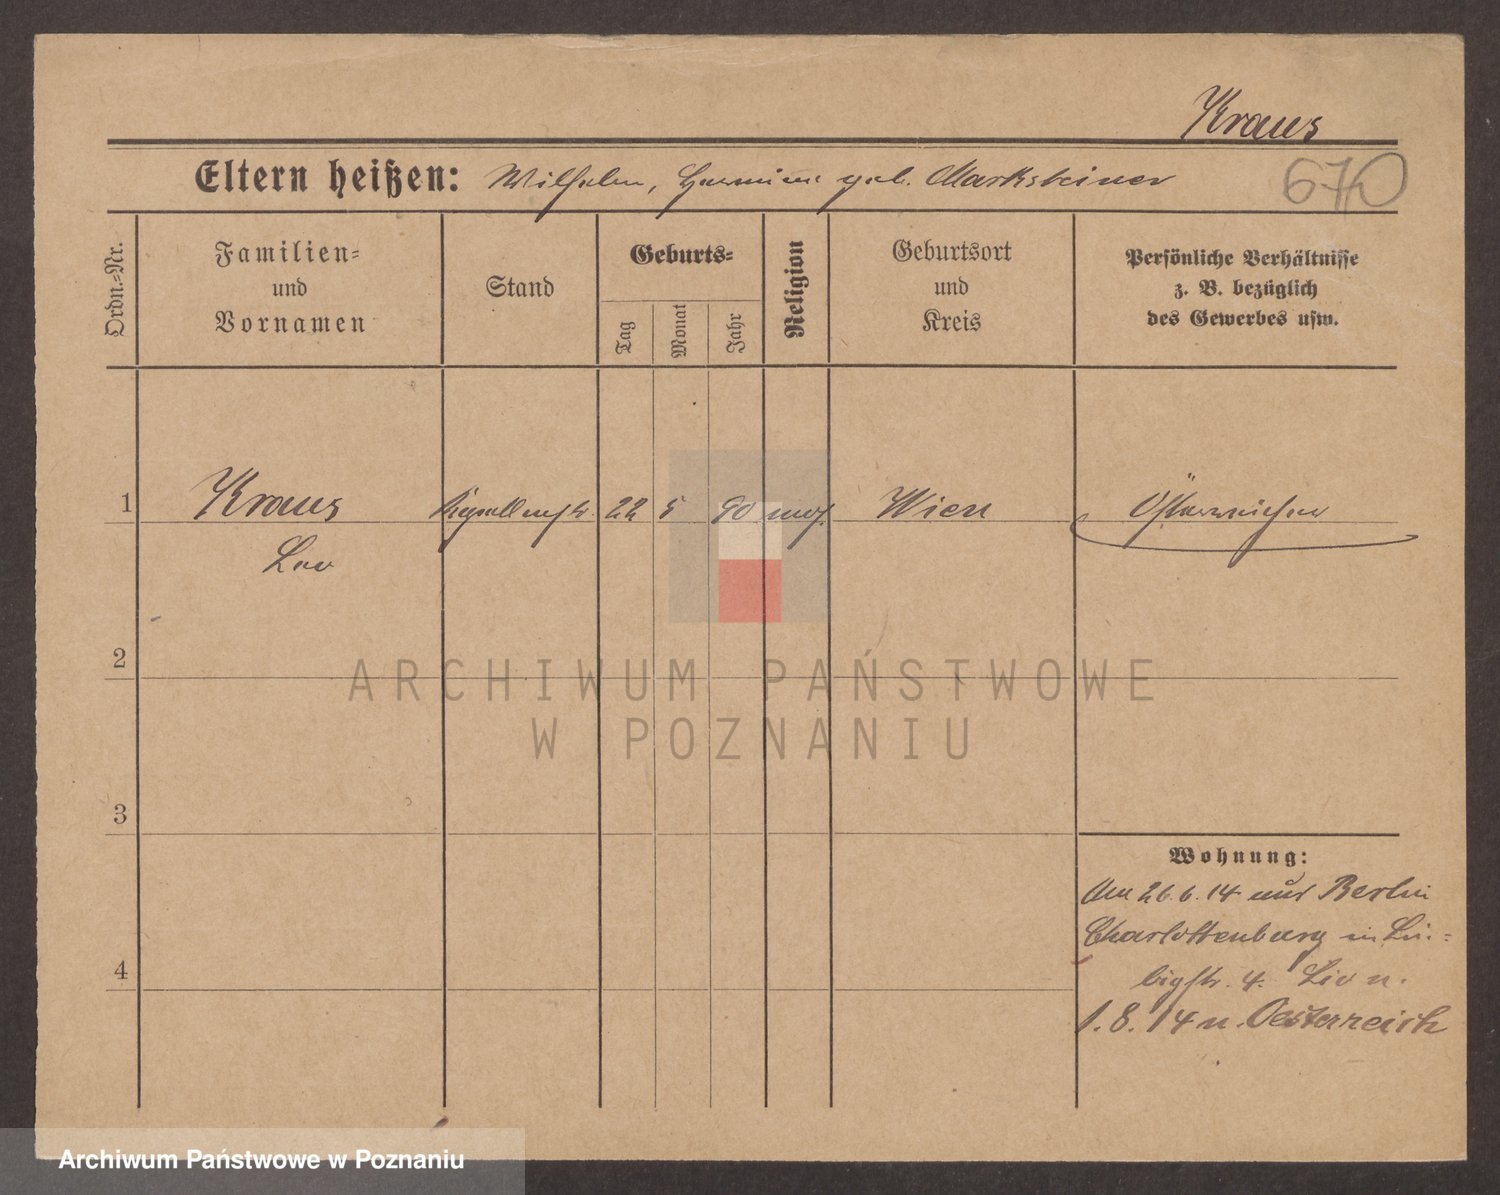 Kraus
Eltern heißen: Wilhelm, Hermine geb. Marksteiner
670
Ordn.-Nr.
Familien-
und
Vornamen
Stand
Geburts-
Tag
Monat
Jahr
Religion
Geburtsort
und
Kreis
Persönliche Verhältnisse
z. B. bezüglich
des Gewerbes usw.
1
Kraus
Leo
Kapellmstr.
22
5
90
mos.
Wien
Österreicher
2
ARCHIWUM PAŃSTWOWE
W POZNANIU
3
4
Wohnung:
Am 26.6.14 aus Berlin
Charlottenburg
bigstr. 4.
1.8.14 n. Oesterreich
Archiwum Państwowe w Poznaniu